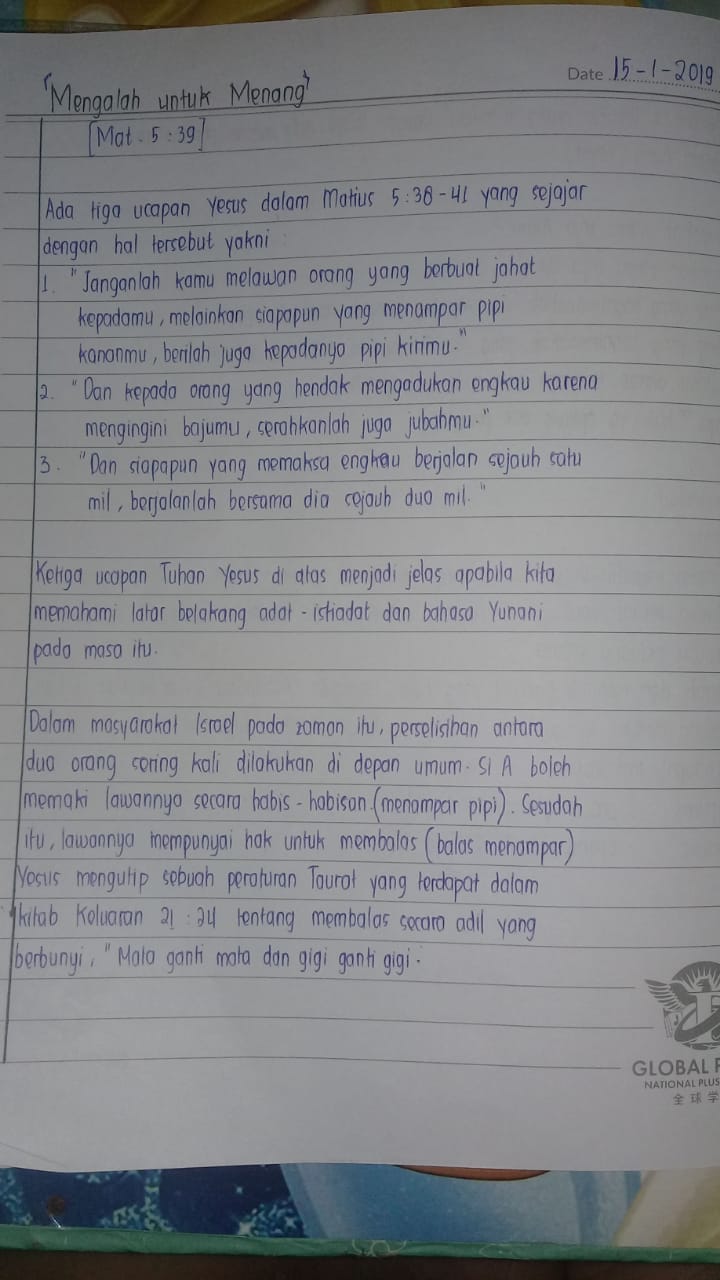 Date 15-1-2019
"Mengalah untuk Menang"
[Mat. 5:39]
Ada tiga ucapan Yesus dalam Matius 5:38-41 yang sejajar
dengan hal tersebut yakni :
1. "Janganlah kamu melawan orang yang berbuat jahat
kepadamu, melainkan siapapun yang menampar pipi
kananmu, berilah juga kepadanya pipi kirimu."
2. "Dan kepada orang yang hendak mengadukan engkau karena
mengingini bajumu, serahkanlah juga jubahmu."
3. "Dan siapapun yang memaksa engkau berjalan sejauh satu
mil, berjalanlah bersama dia sejauh dua mil."
Ketiga ucapan Tuhan Yesus di atas menjadi jelas apabila kita
memahami latar belakang adat-istiadat dan bahasa Yunani
pada masa itu.
Dalam masyarakat Israel pada zaman itu, perselisihan antara
dua orang sering kali dilakukan di depan umum. Si A boleh
memaki lawannya secara habis-habisan (menampar pipi). Sesudah
itu, lawannya mempunyai hak untuk membalas (balas menampar)
Yesus mengutip sebuah peraturan Taurat yang terdapat dalam
kitab Keluaran 21:24 tentang membalas secara adil yang
berbunyi, "Mata ganti mata dan gigi ganti gigi.
GLOBAL
NATIONAL PLUS
全球学